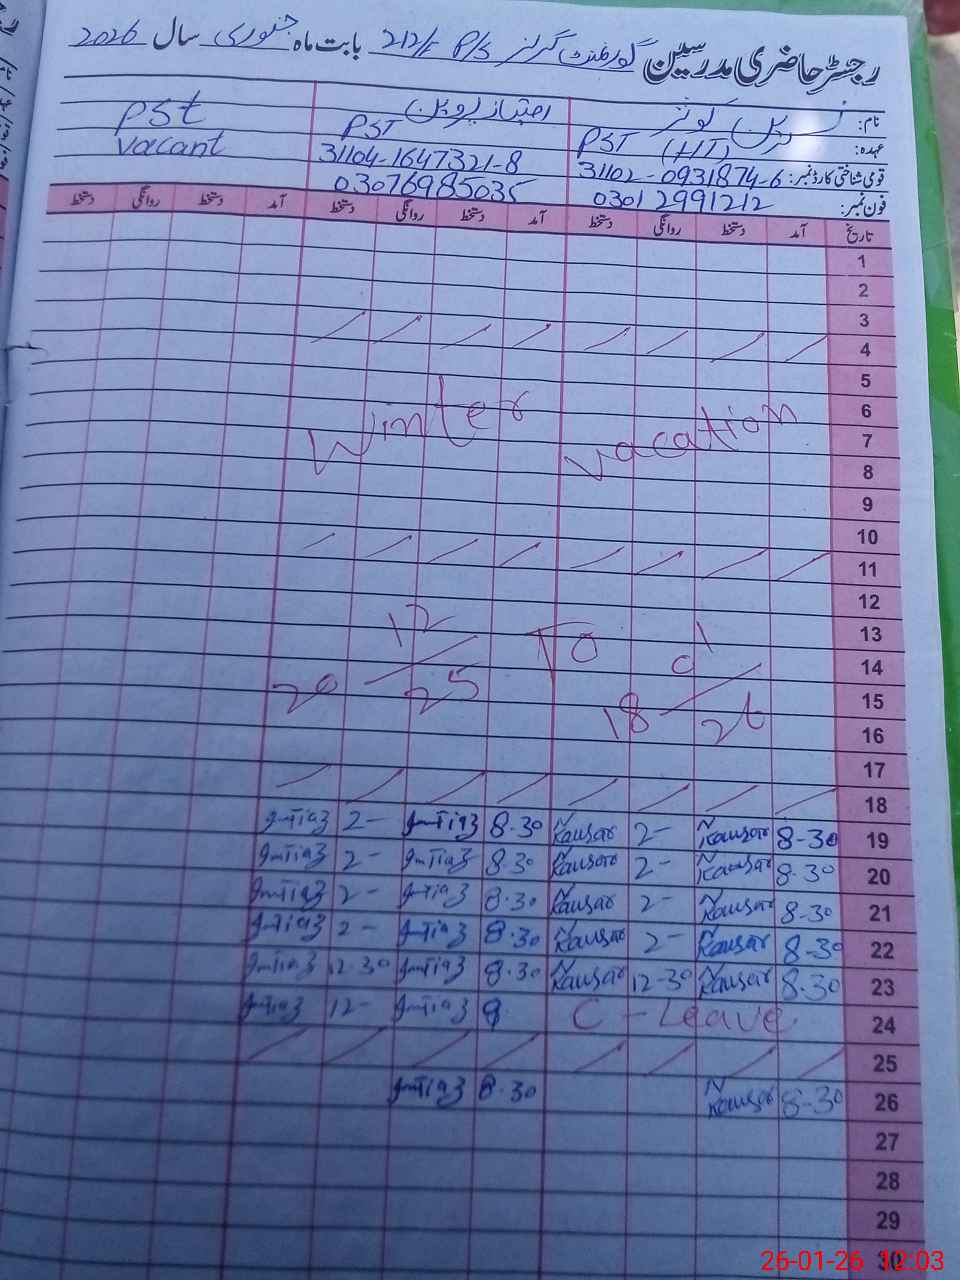 رجسٹر حاضری مدرسین گورنمنٹ گرلز P/S 212/F بابت ماہ جنوری سال 2026
نام: نسرین کوثر امتیاز پروین PST
عہدہ: PST (HT) PST vacant
قومی شناختی کارڈ نمبر: 31102-0931874-6 31104-1647321-8
فون نمبر: 03012991212 03076985035
تاریخ آمد دستخط روانگی دستخط آمد دستخط روانگی دستخط آمد دستخط روانگی دستخط
1
2
3
4
5
6
Winter vacation
7
8
9
10
11
12
13
14
20 12/25 To 18 01/26
15
16
17
18
19 8-30 Kausar 2- Kausar 8.30 Imtiaz 2- Imtiaz
20 8-30 Kausar 2- Kausar 8.30 Imtiaz 2- Imtiaz
21 8-30 Kausar 2- Kausar 8.30 Imtiaz 2- Imtiaz
22 8-30 Kausar 2- Kausar 8.30 Imtiaz 2- Imtiaz
23 8-30 Kausar 12-30 Kausar 8.30 Imtiaz 12-30 Imtiaz
24 C-Leave 9 Imtiaz 12- Imtiaz
25
26 8-30 Kausar 8.30 Imtiaz
27
28
29
30
26-01-26 12:03